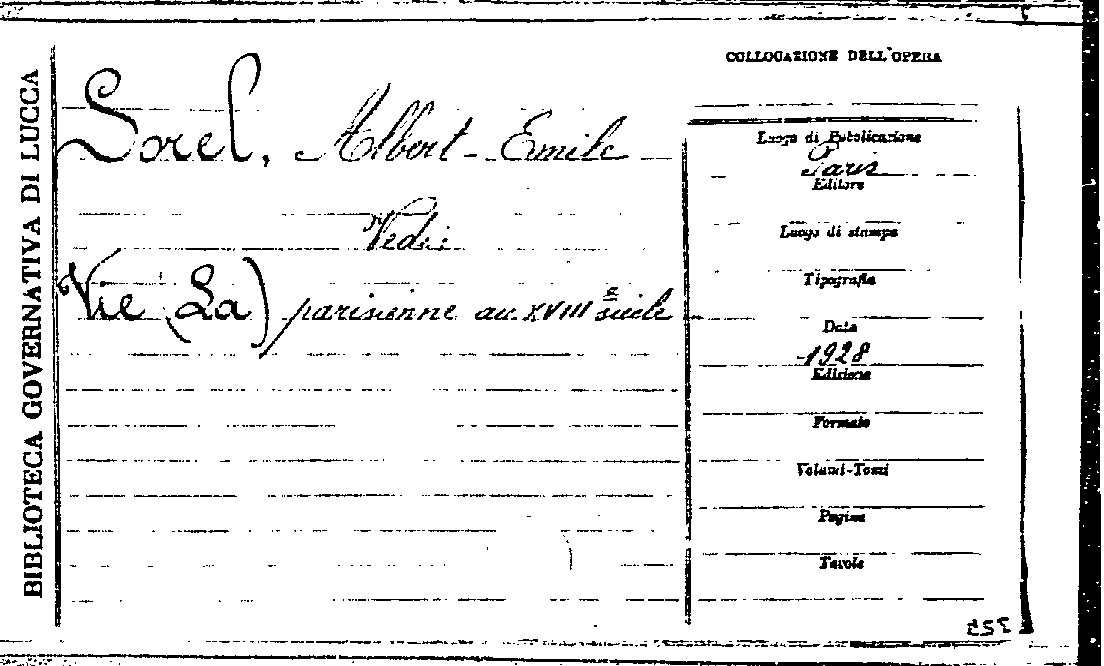 BIBLIOTECA GOVERNATIVA DI LUCCA
Sorel, Albert-Emile
Vedi:
Vie (La) parisienne au XVIIIe siècle
COLLOCAZIONE DELL'OPERA
Luogo di Pubblicazione
Paris
Editore
Luogo di stampa
Tipografia
Data
1928
Edizione
Formato
Volumi-Tomi
Pagine
Tavole